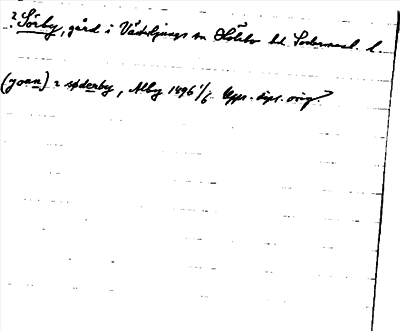 ? Sörby, gård i Västerljungs sn Hölebo hd. Södermanl. l.
(goan) i søderby, Alby 1496 1/6 Upps. dipl. orig.?